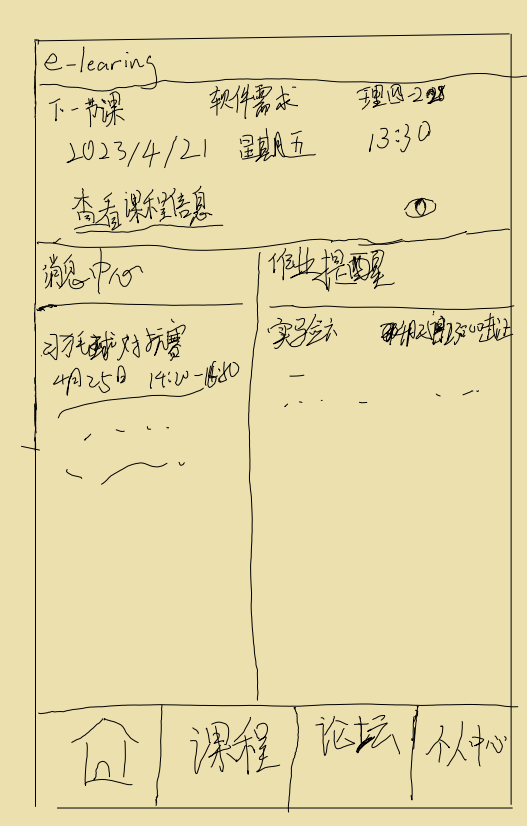 e-learing
下一节课 软件需求 理四-208
2023/4/21 星期五 13:30
查看课程信息
消息中心
羽毛球对抗赛
4月25日 14:20-
作业提醒
实验
课程
论坛
个人中心